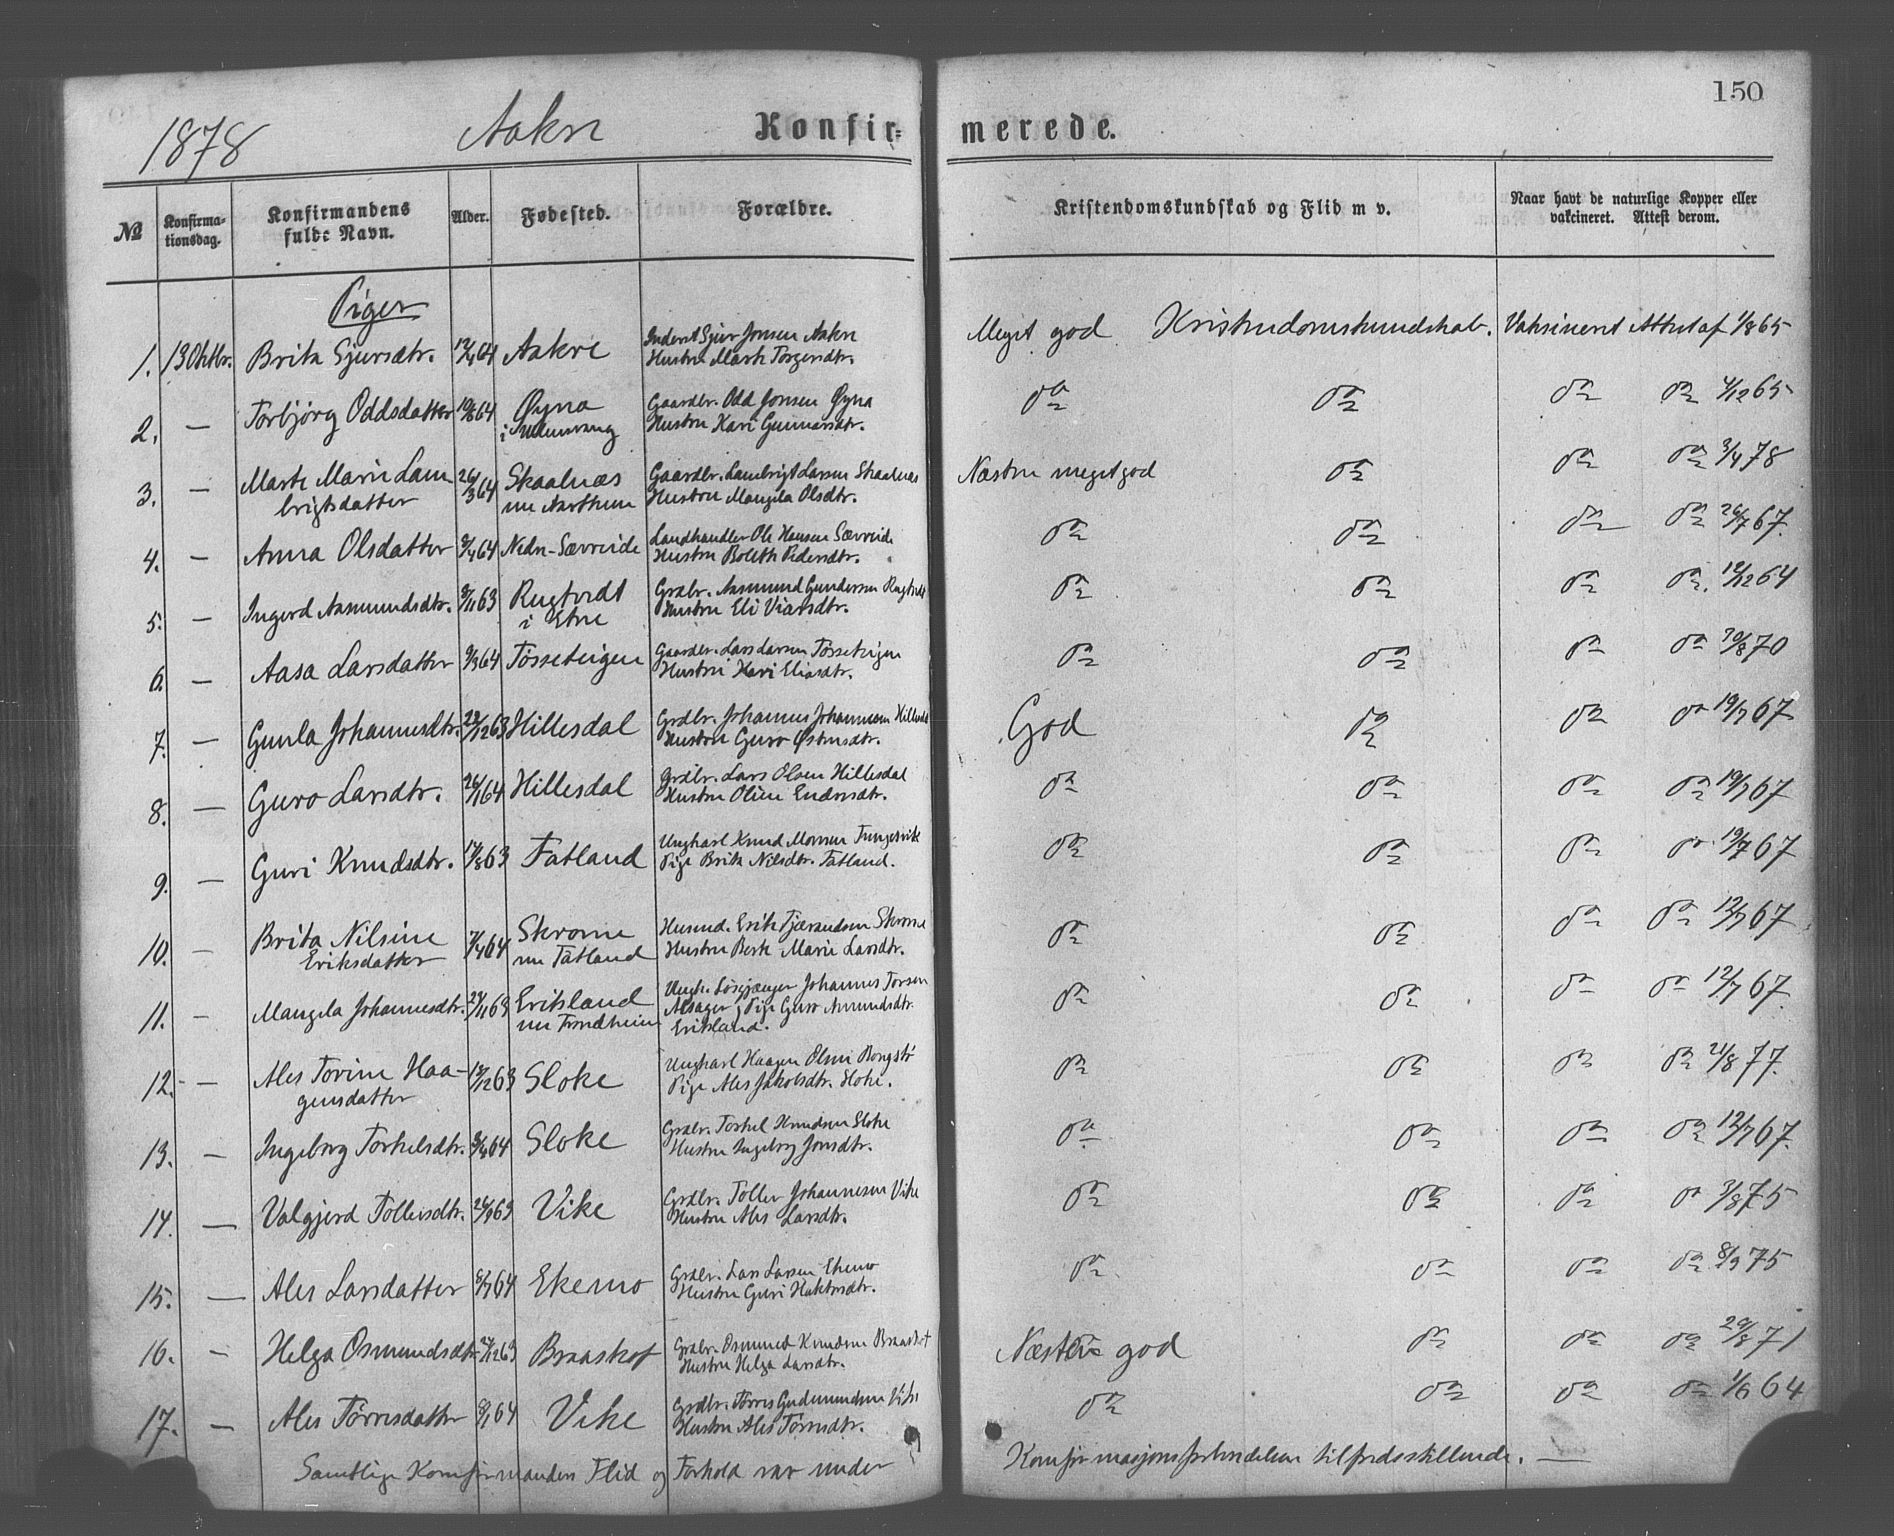 1878 Aakre Konfir= merede. 150
№ Konfirma-tionsdag. Konfirmandens fulde Navn. Alder. Fødested. Forældre. Kristendomskundskab og Flid m v. Naar havt de naturlige Kopper eller vakcineret. Attest derom.
Piger
1. 13 Oktbr. Brita Sjursdtr. 12/4 64 Aakre Inderst Sjur Jonsen Aakre Meget god Kristendomskundskab. Vaksineret Attest af 1/8 65
Hustru Marte Torgersdtr.
2. — Torbjørg Oddsdatter 64 Øyna Gaardbr. Odd Jonsen Øyna do do do do 4/12 65
i Ullensvang Hustru Kari Gunnarsdtr.
3. — Marte Marie Lam 26/3 64 Skaalnæs Gaardbr. Lambrigt Larsen Skaalnæs Næsten meget god do do do 3/4 78
brigtsdatter Hustru Mangela Olsdtr.
4. — Anna Olsdatter 9/4 64 Nedre-Sævreide Landhandler Ole Hansen Sævreide do do do do 26/7 67.
Hustru Bolette Pedersdtr.
5. — Ingerd Aasmundsdtr. 9/11 63 Rygtvedt Grdbr. Aasmund Gundersen do do do do. 12/12 64
i Etne Hustru Eli Viarsdtr.
6. — Aasa Larsdatter 9/3 64 Tøsseteigen Gaardbr. Lars Larsen Tøsseteigen do do do do 30/8 70
Hustru Kari Eliasdtr.
7. — Gunla Johannesdtr. 22/12 63 Hillesdal Grdbr. Johannes Johannesen Hillesdal God do do do 19/7 67
Hustru Guro Østensdtr.
8. — Guro Larsdtr. 26/1 64 Hillesdal Grdbr. Lars Olsen Hillesdal do do do do 19/7 67
Hustru Oline Endresdtr.
9. — Guri Knudsdtr. 17/8 63 Fatland Ungkarl Knud Monsen Tungesvik do do do do 19/7 67
Pige Brita Nilsdtr. Fatland.
10. — Brita Nilsine 7/4 64 Skromme Husmd. Erik Tjerandsen Skromme do do do do 12/7 67
Eriksdatter Fatland Hustru Berte Marie Larsdtr.
11. — Mangela Johannesdtr. 29/11 63 Eriksland Ungk. Løsgjænger Johannes Torsen do do do do 12/7 67
Trondheim Alsager, Pige Guro Amundsdtr.
Eriksland.
12. — Ales Torine Haa- 18/12 63 Sloke Ungkarl Haagen Olsen do do do do 21/8 77.
gensdatter Pige Ales Jakobsdtr. Sloke.
13. — Ingeborg Torkelsdtr. 64 Sloke Grdbr. Torkel Knudsen Sloke do do do do 12/7 67.
Hustru Ingeborg Jonsdtr.
14. — Valgjerd Tollevsdtr. 63 Vike Grdbr. Tollev Johannesen Vike do do do do 3/8 75
Hustru Ales Larsdtr.
15. — Ales Larsdatter 8/7 64 Ekemo Grdbr. Lars Larsen Ekemo do do do do 8/9 75
Hustru Guri
16. — Helga Osmundsdtr. 27/12 63 Braaskot Grdbr. Osmund Knudsen Braaskot Næsten god do do do 29/8 71
Hustru Helga Larsdtr.
17. — Ales Tørresdatter 8/1 64 Vike Grdbr. Tørres Gudmundsen Vike do do do do 1/6 64
Hustru Ales Tørresdtr.
Samtlige Komfirmanders Flid og Forhold var under Komfirmasjonsforberedelsen tilfredsstillende. —